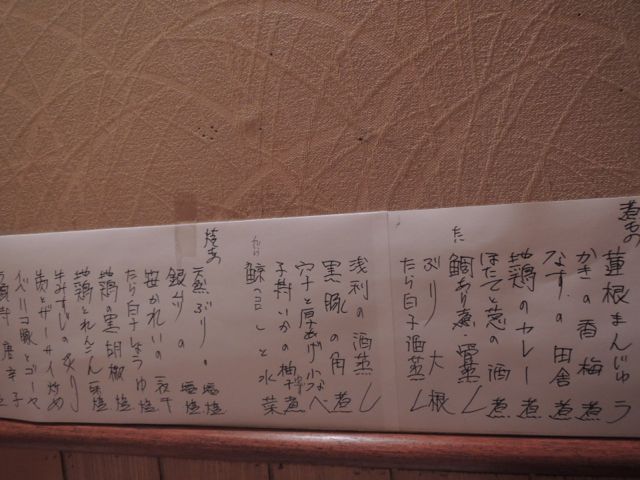 煮もの
蓮根まんじゅう
かきの香梅煮
なすの田舎煮
地鶏のカレー煮
ほたてと葱の酒煮
鯛あり煮・骨蒸し
ぶり大根
たら白子酒蒸し
浅利の酒蒸し
黒豚の角煮
穴子と厚あげ小なべ
子持いかの柚子煮
鯨のコロと水菜
焼もの
天然ぶり・塩焼
銀ダラの塩焼
笹かれいの一夜干
たら白子しょうゆ焼
地鶏の黒胡椒焼
地鶏とれんこん
牛みすじの炙り
ザーサイ炒め
イベリコ豚とゴーヤ
唐辛子